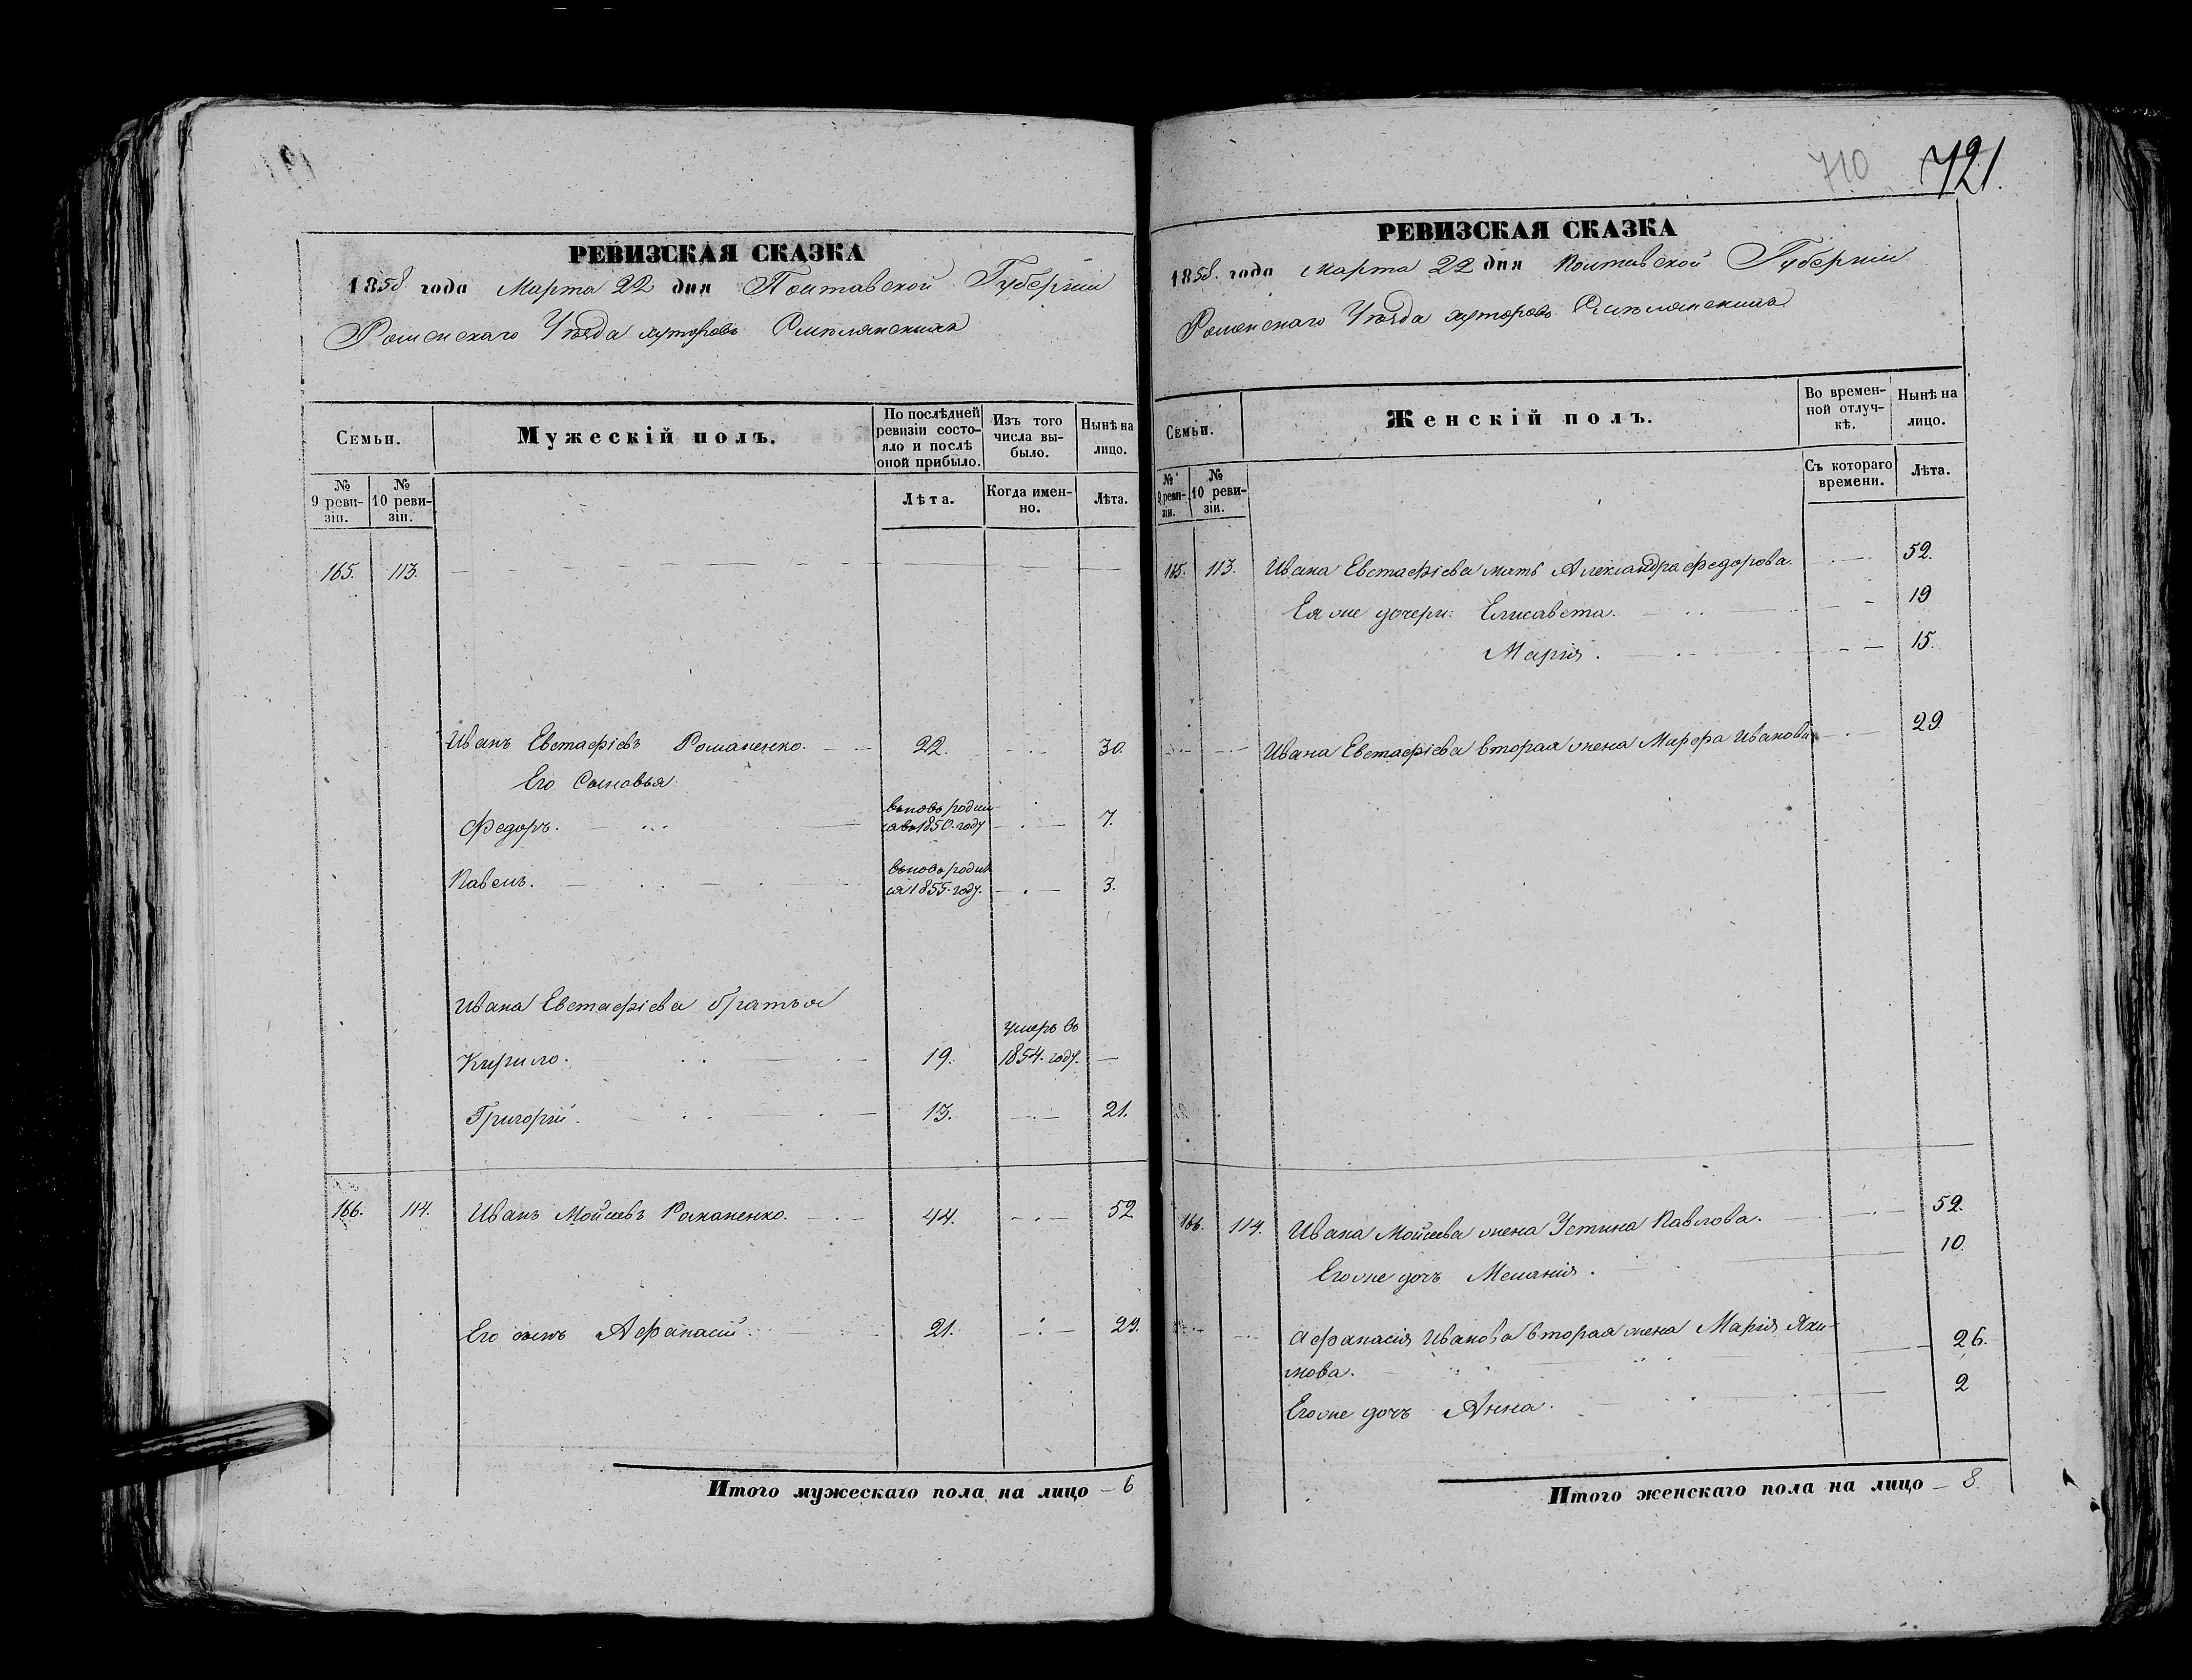 710 721.
РЕВИЗСКАЯ СКАЗКА
1858 года Марта 22 дня Полтавской Губернии
Роменскаго Уѣзда хуторовъ
Семьи.
Мужескій полъ.
По послѣдней ревизіи состояло и послѣ оной прибыло.
Изъ того числа выбыло.
Нынѣ на лицо.
№ 9 ревизіи.
№ 10 ревизіи.
Лѣта.
Когда именно.
Лѣта.
165. 113.
Иванъ Евстафіевъ Романенко. 22. 30.
Его Сыновья
Федоръ. вновь родил
ся въ 1850 году 7.
Павелъ. вновь родил
ся 1855 году. 3.
Ивана Евстафіева братья
Кирило. 19. умеръ въ
1854 году.
Григорій. 13. 21.
166. 114. Иванъ Мойсеевъ Романенко. 44. 52
Его сынъ Афанасій. 21. 29.
Итого мужескаго пола на лицо – 6
РЕВИЗСКАЯ СКАЗКА
1858 года Марта 22 дня Полтавской Губернии
Роменскаго Уѣзда хуторовъ
Семьи.
Женскій полъ.
Во временной отлучкѣ.
Нынѣ на лицо.
№ 9 ревизіи.
№ 10 ревизіи.
Съ котораго времени.
Лѣта.
165. 113. Ивана Евстафіева мать Александра Федорова. 52.
Ея же дочери: Елисавета. 19
Марія. 15.
Ивана Евстафіева вторая жена Марфа Иванова 29
166. 114. Ивана Мойсеева жена Устина Павлова. 52.
Его же дочь Меланія. 10.
Афанасія Иванова вторая жена Марія Яки-
мова. 26.
Его же дочь Анна. 2
Итого женскаго пола на лицо – 8.